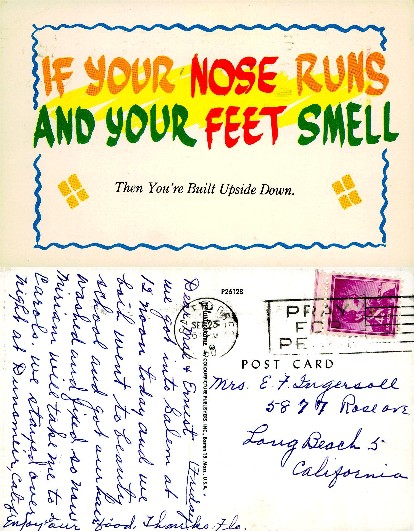 IF YOUR NOSE RUNS
AND YOUR FEET SMELL
Then You're Built Upside Down.
P26128
POST CARD
PRAY
FOR
PEACE
Mrs. E. F. Ingersoll
5877 Rose ave
Long Beach 5
California
Dear & Ernest Friday
we got into Salem at
12 noon today and we
both went to beauty
school and got
washed and fixed so now
Miriam will take me to
Carols. we stayed over
night at Dunsmuir, Calif.
Enjoy our food, Thanks, Flo.